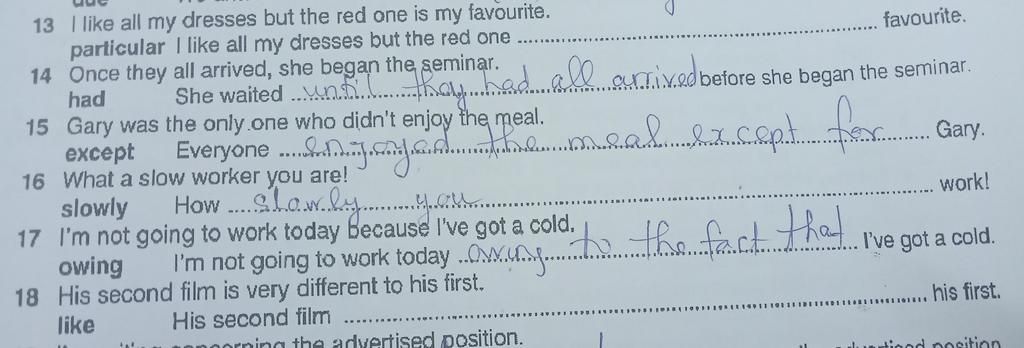 13 I like all my dresses but the red one is my favourite.
particular I like all my dresses but the red one ........ favourite.
14 Once they all arrived, she began the seminar.
had She waited until they had all arrived before she began the seminar.
15 Gary was the only one who didn't enjoy the meal.
except Everyone enjoyed the meal except for Gary.
16 What a slow worker you are!
slowly How slowly you ........ work!
17 I'm not going to work today because I've got a cold.
owing I'm not going to work today owing to the fact that I've got a cold.
18 His second film is very different to his first.
like His second film ........ his first.
concerning the advertised position.